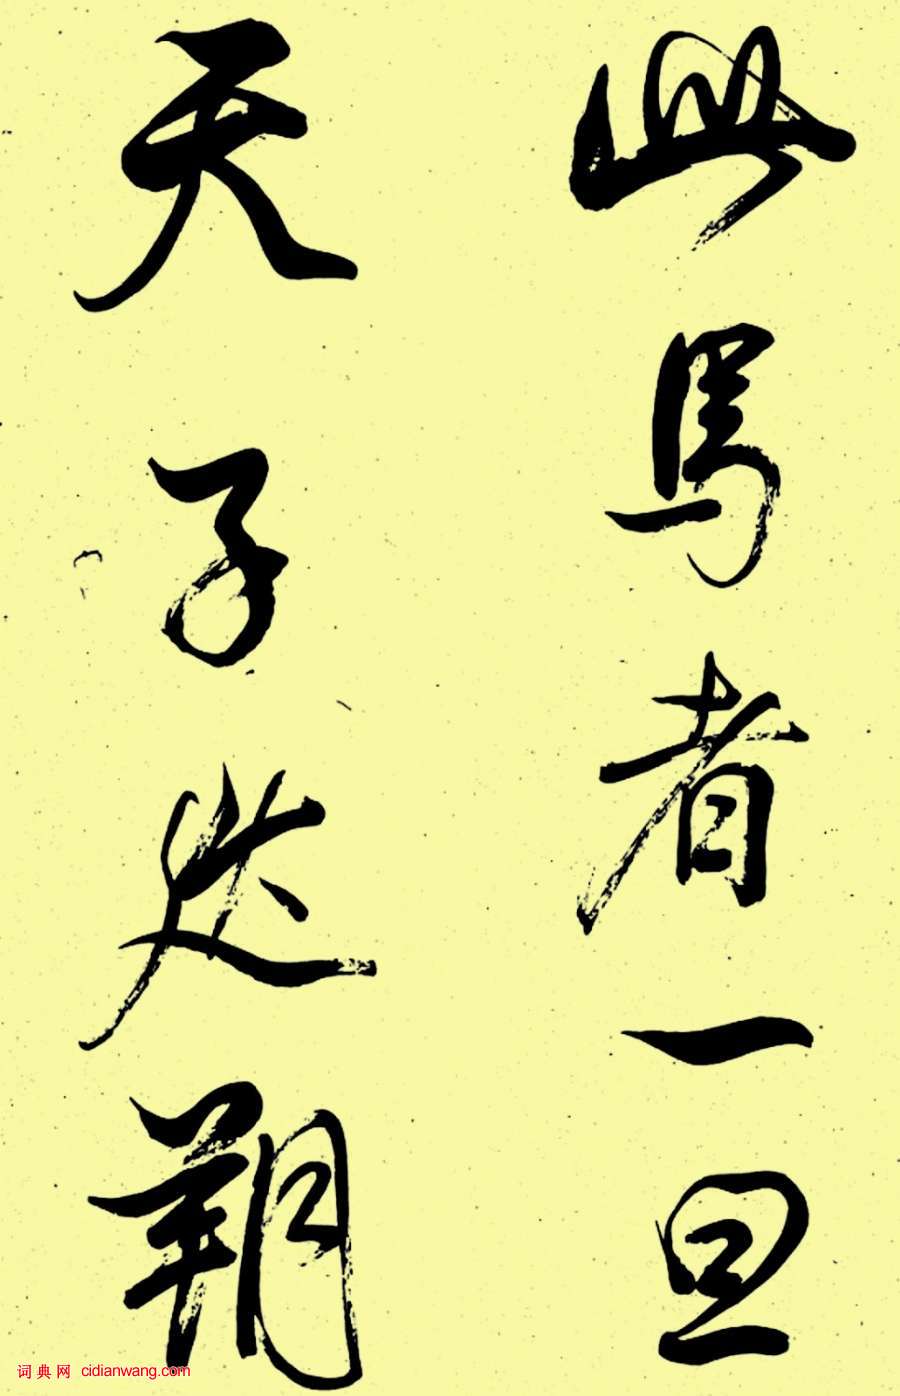 與馬者一旦
天子朔
词典网 cidianwang.com